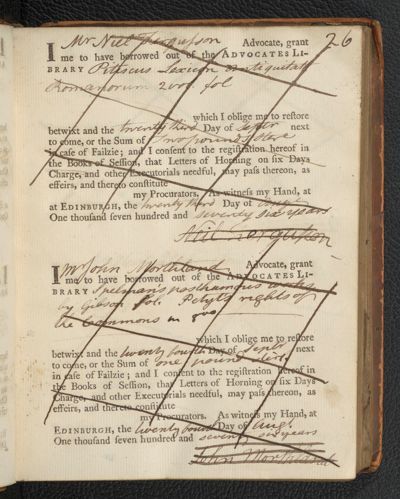 26
I Mr Niel Ferguson Advocate, grant
me to have borrowed out of the ADVOCATES LI-
BRARY Pitiscus Lexicon Antiquitat
Romanorum 2 vol. fol
which I oblige me to reſtore
betwixt and the twenty third Day of Septr next
to come, or the Sum of Two pounds Sterg
in caſe of Failzie; and I conſent to the regiſtration hereof in
the Books of Seſſion, that Letters of Horning on ſix Days
Charge, and other Executorials needful, may paſs thereon, as
effeirs, and thereto conſtitute
my Procurators. As witneſs my Hand, at
at EDINBURGH, the twenty third Day of Augt
One thouſand ſeven hundred and seventy six years
Niel Ferguson
I Mr John Morthland Advocate, grant
me to have borrowed out of the ADVOCATES LI-
BRARY Spelman's posthumous works
by Gibson fol. Petyts rights of
the Commons in 8vo
which I oblige me to reſtore
betwixt and the twenty fourth Day of Septr next
to come, or the Sum of one pound Ster
in caſe of Failzie; and I conſent to the regiſtration hereof in
the Books of Seſſion, that Letters of Horning on ſix Days
Charge, and other Executorials needful, may paſs thereon, as
effeirs, and thereto conſtitute
my Procurators. As witneſs my Hand, at
EDINBURGH, the twenty fourth Day of Augt
One thouſand ſeven hundred and seventy six years
John Morthland